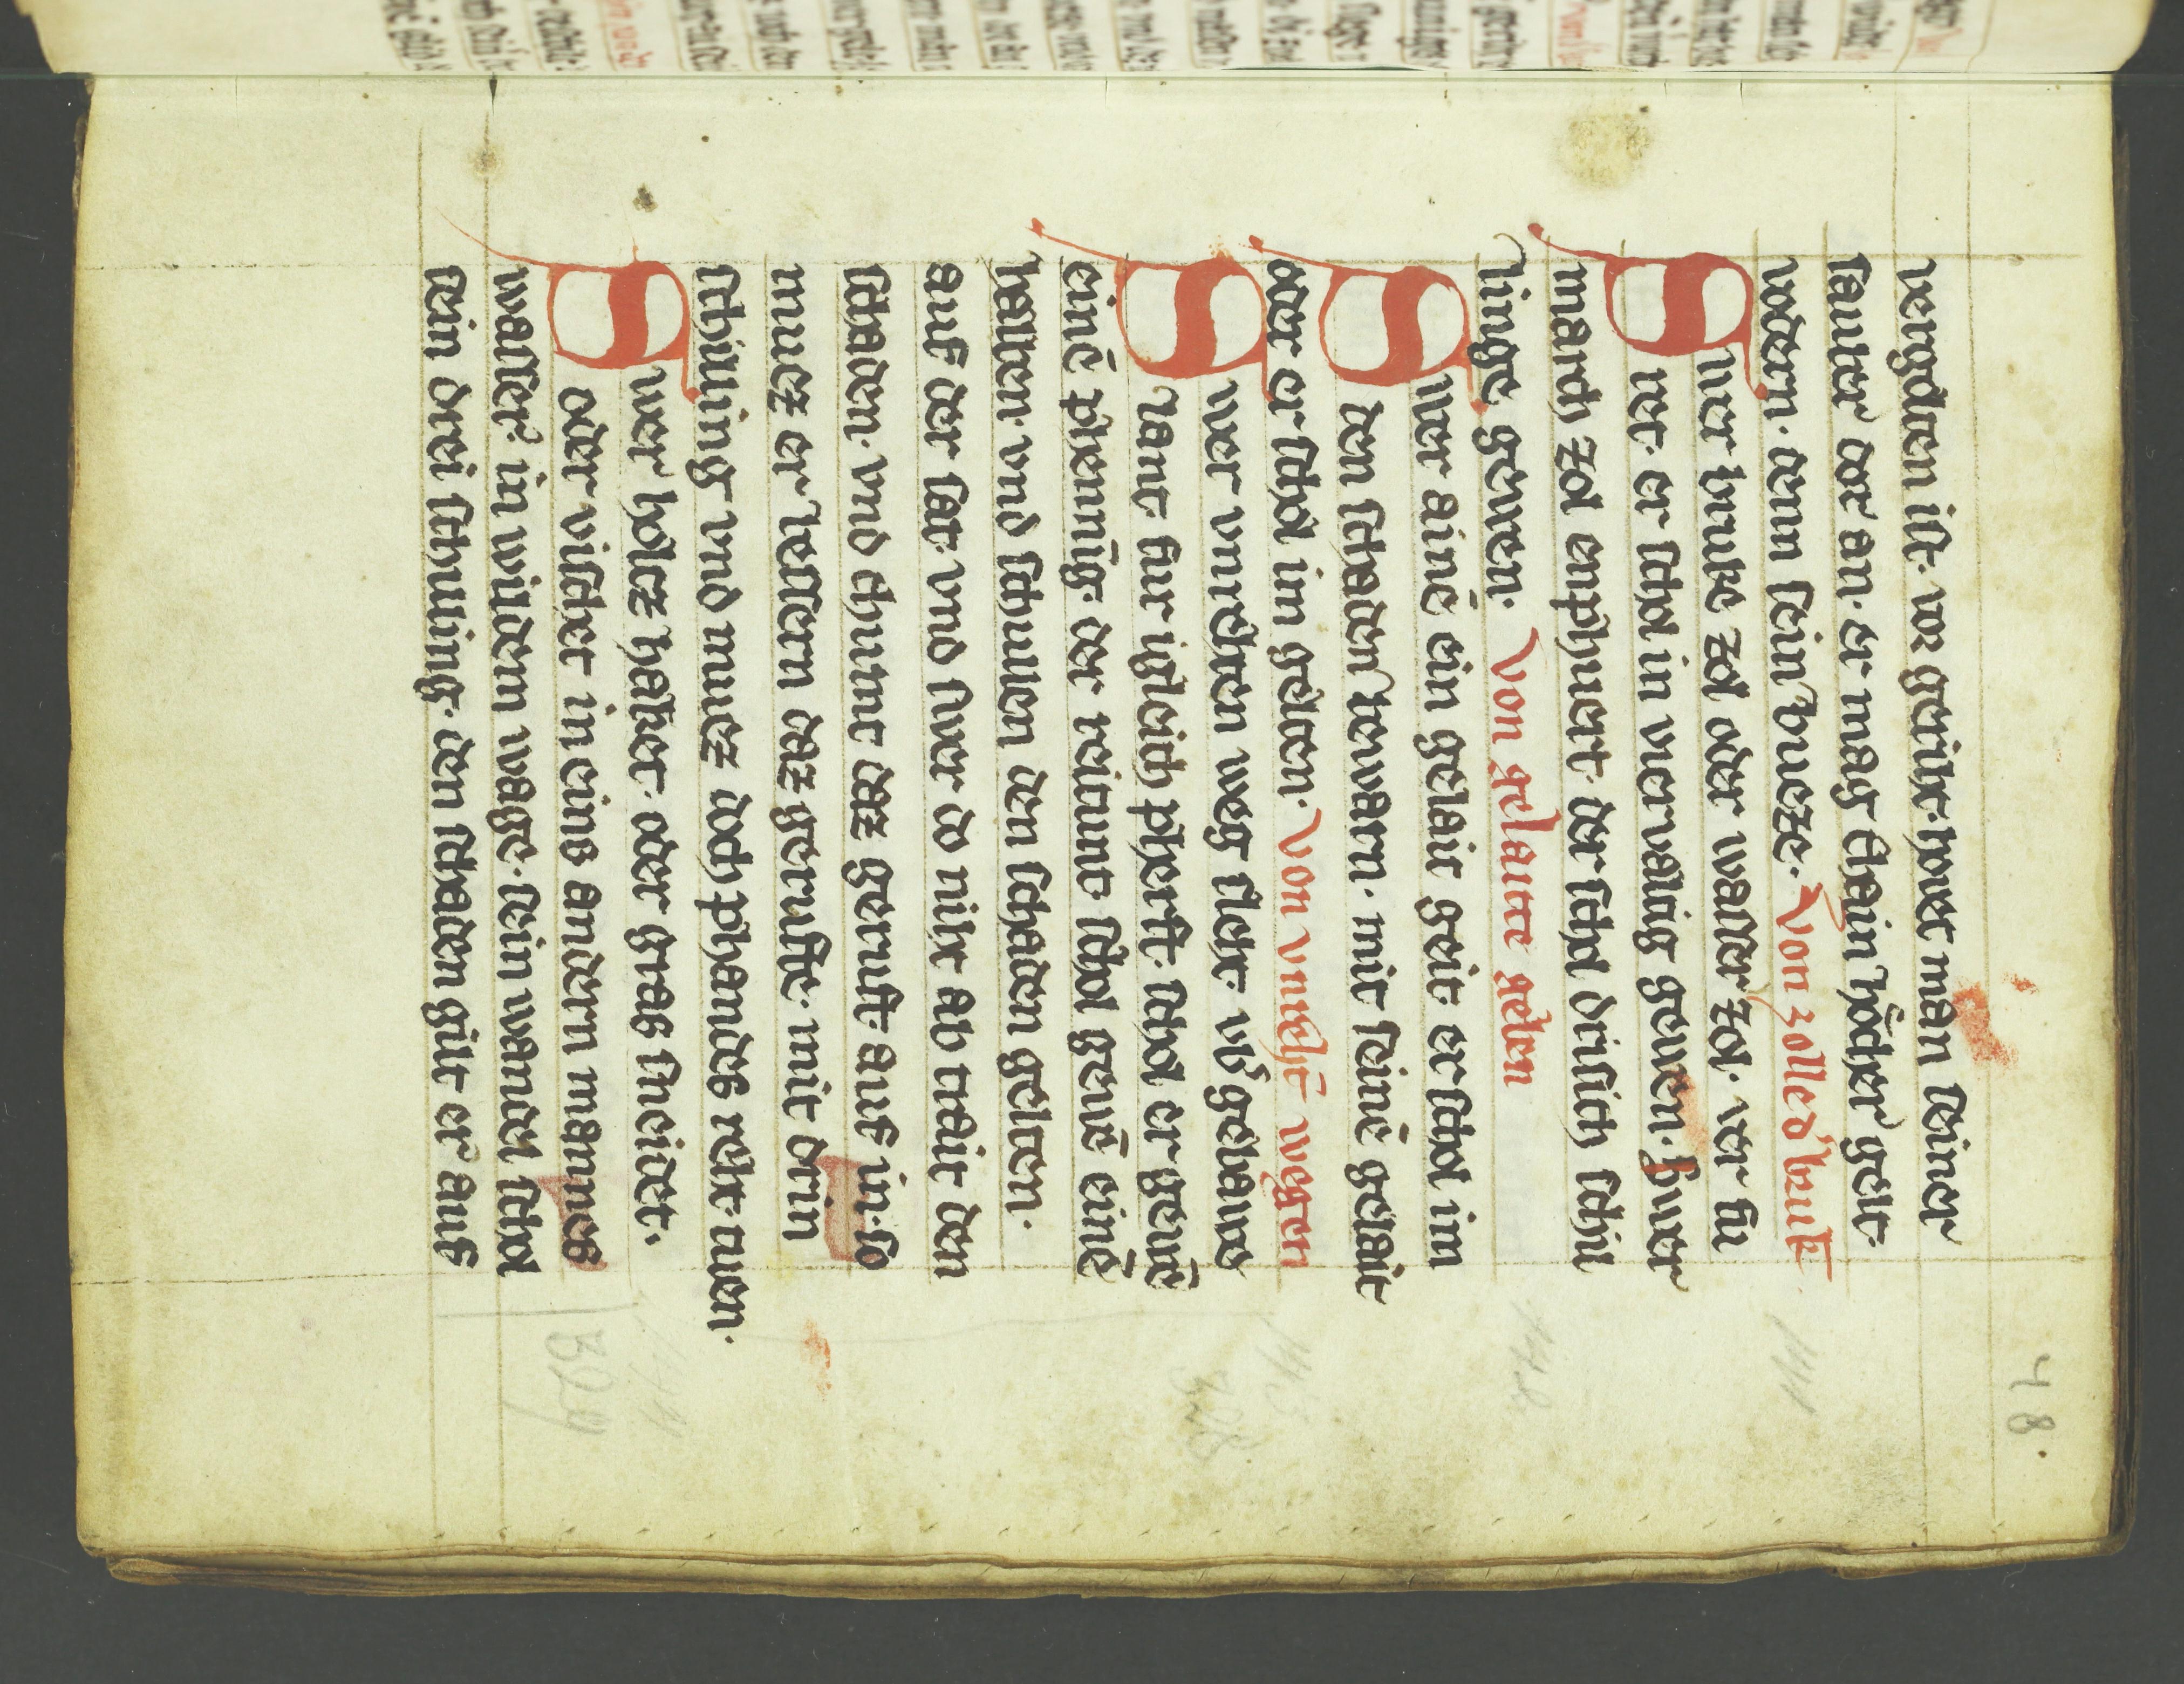 48
vergolten ist. vor geriht. hwet man seiner
lauter dor an. er mag chain hoher gelt
vodern. denn sein buezze. Von zoll vnd bruk
Swer bruke zol oder wasser zol. ver fu
ret. er schol in viervaltig geben. Swer
march zol enphuert. der schol drisich schil
linge geben. Von gelaitte geben
Swer ainē ein gelait geit. er schol im
den schaden bewarn. mit seinē gelait
oder er schol im gelten. Von vnreht wegen
Swer vnrehten weg sleht vb gebaws
lant fur igleich phert. schol er gebē
einē phennīg. der reitunt schol gebē einē
halben. vnd schullen den schaden gelten.
auf der sat. vnd swer do niht ab trait den
schaden. vnd chumt daz geruft auf in. so
muez er bessern daz gerufte. mit drin
schilling vnd muez doch phandes reht tuen.
Swer holcz haket. oder gras sneidet.
oder vischet in eins andern mannes
wasser. in wildem wage. sein wandel schol
sein drei schilling. den schaden gilt er auf
141
142
143
328
144
329